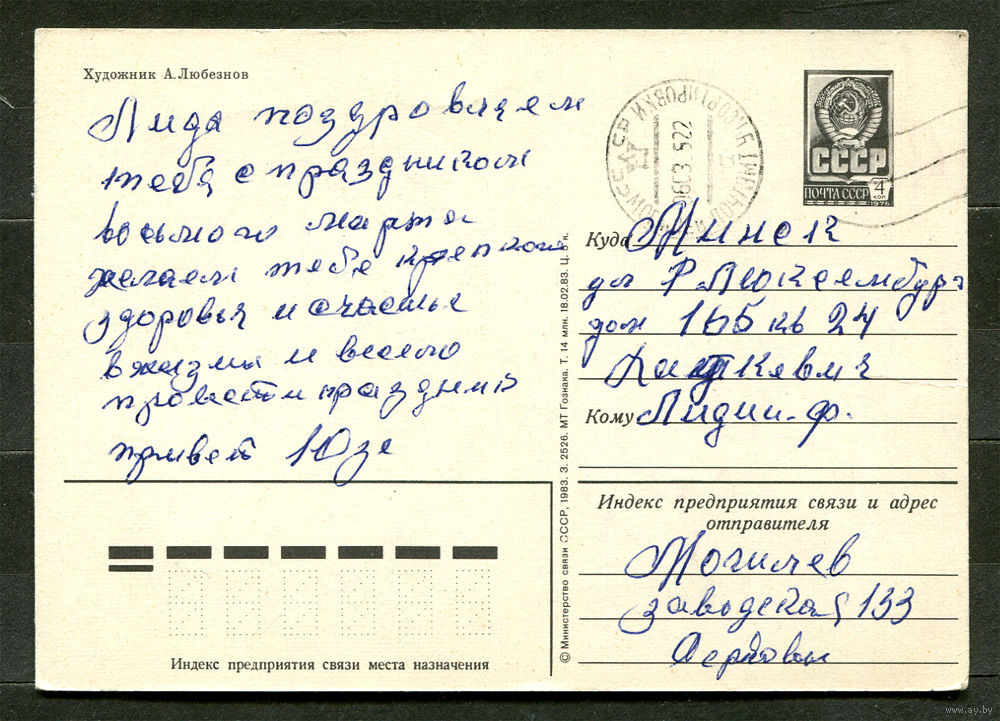 Художник А.Любезнов
Лида поздровляем
тебя с праздником
восьмого марта
желаем тебе крепкого
здоровья и счастье
в жизни и весело
провести праздник
привет Юзе
СССР
ПОЧТА СССР 4 коп
1976
Куда Минск
ул Р Люксембург
дом 165 кв 24
Кому Лидии. ф.
Индекс предприятия связи и адрес
отправителя
Могилев
заводская 133
Индекс предприятия связи места назначения
© Министерство связи СССР, 1983. З. 2526. МТ Гознака. Т. 14 млн. 18.02.83. Ц. 5 к.
www.ay.by